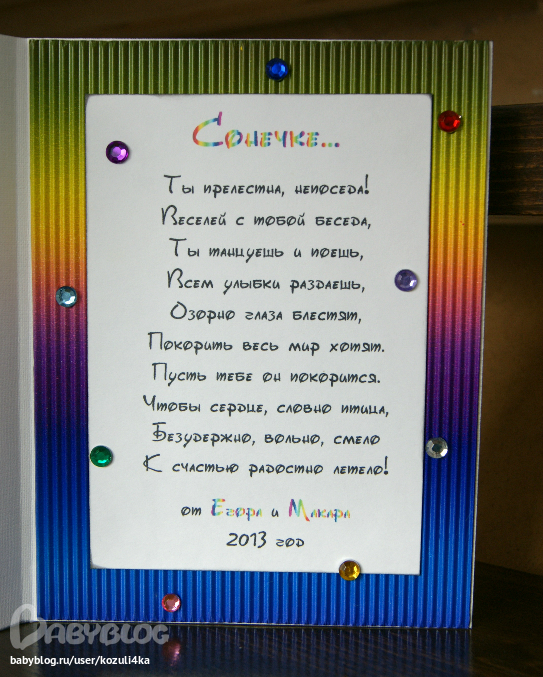 Сонечке...
Ты прелестна, непоседа!
Веселей с тобой беседа,
Ты танцуешь и поешь,
Всем улыбки раздаешь,
Озорно глаза блестят,
Покорить весь мир хотят.
Пусть тебе он покорится.
Чтобы сердце, словно птица,
Безудержно, вольно, смело
К счастью радостно летело!
от Егора и Макара
2013 год
BABYBLOG
babyblog.ru/user/kozuli4ka